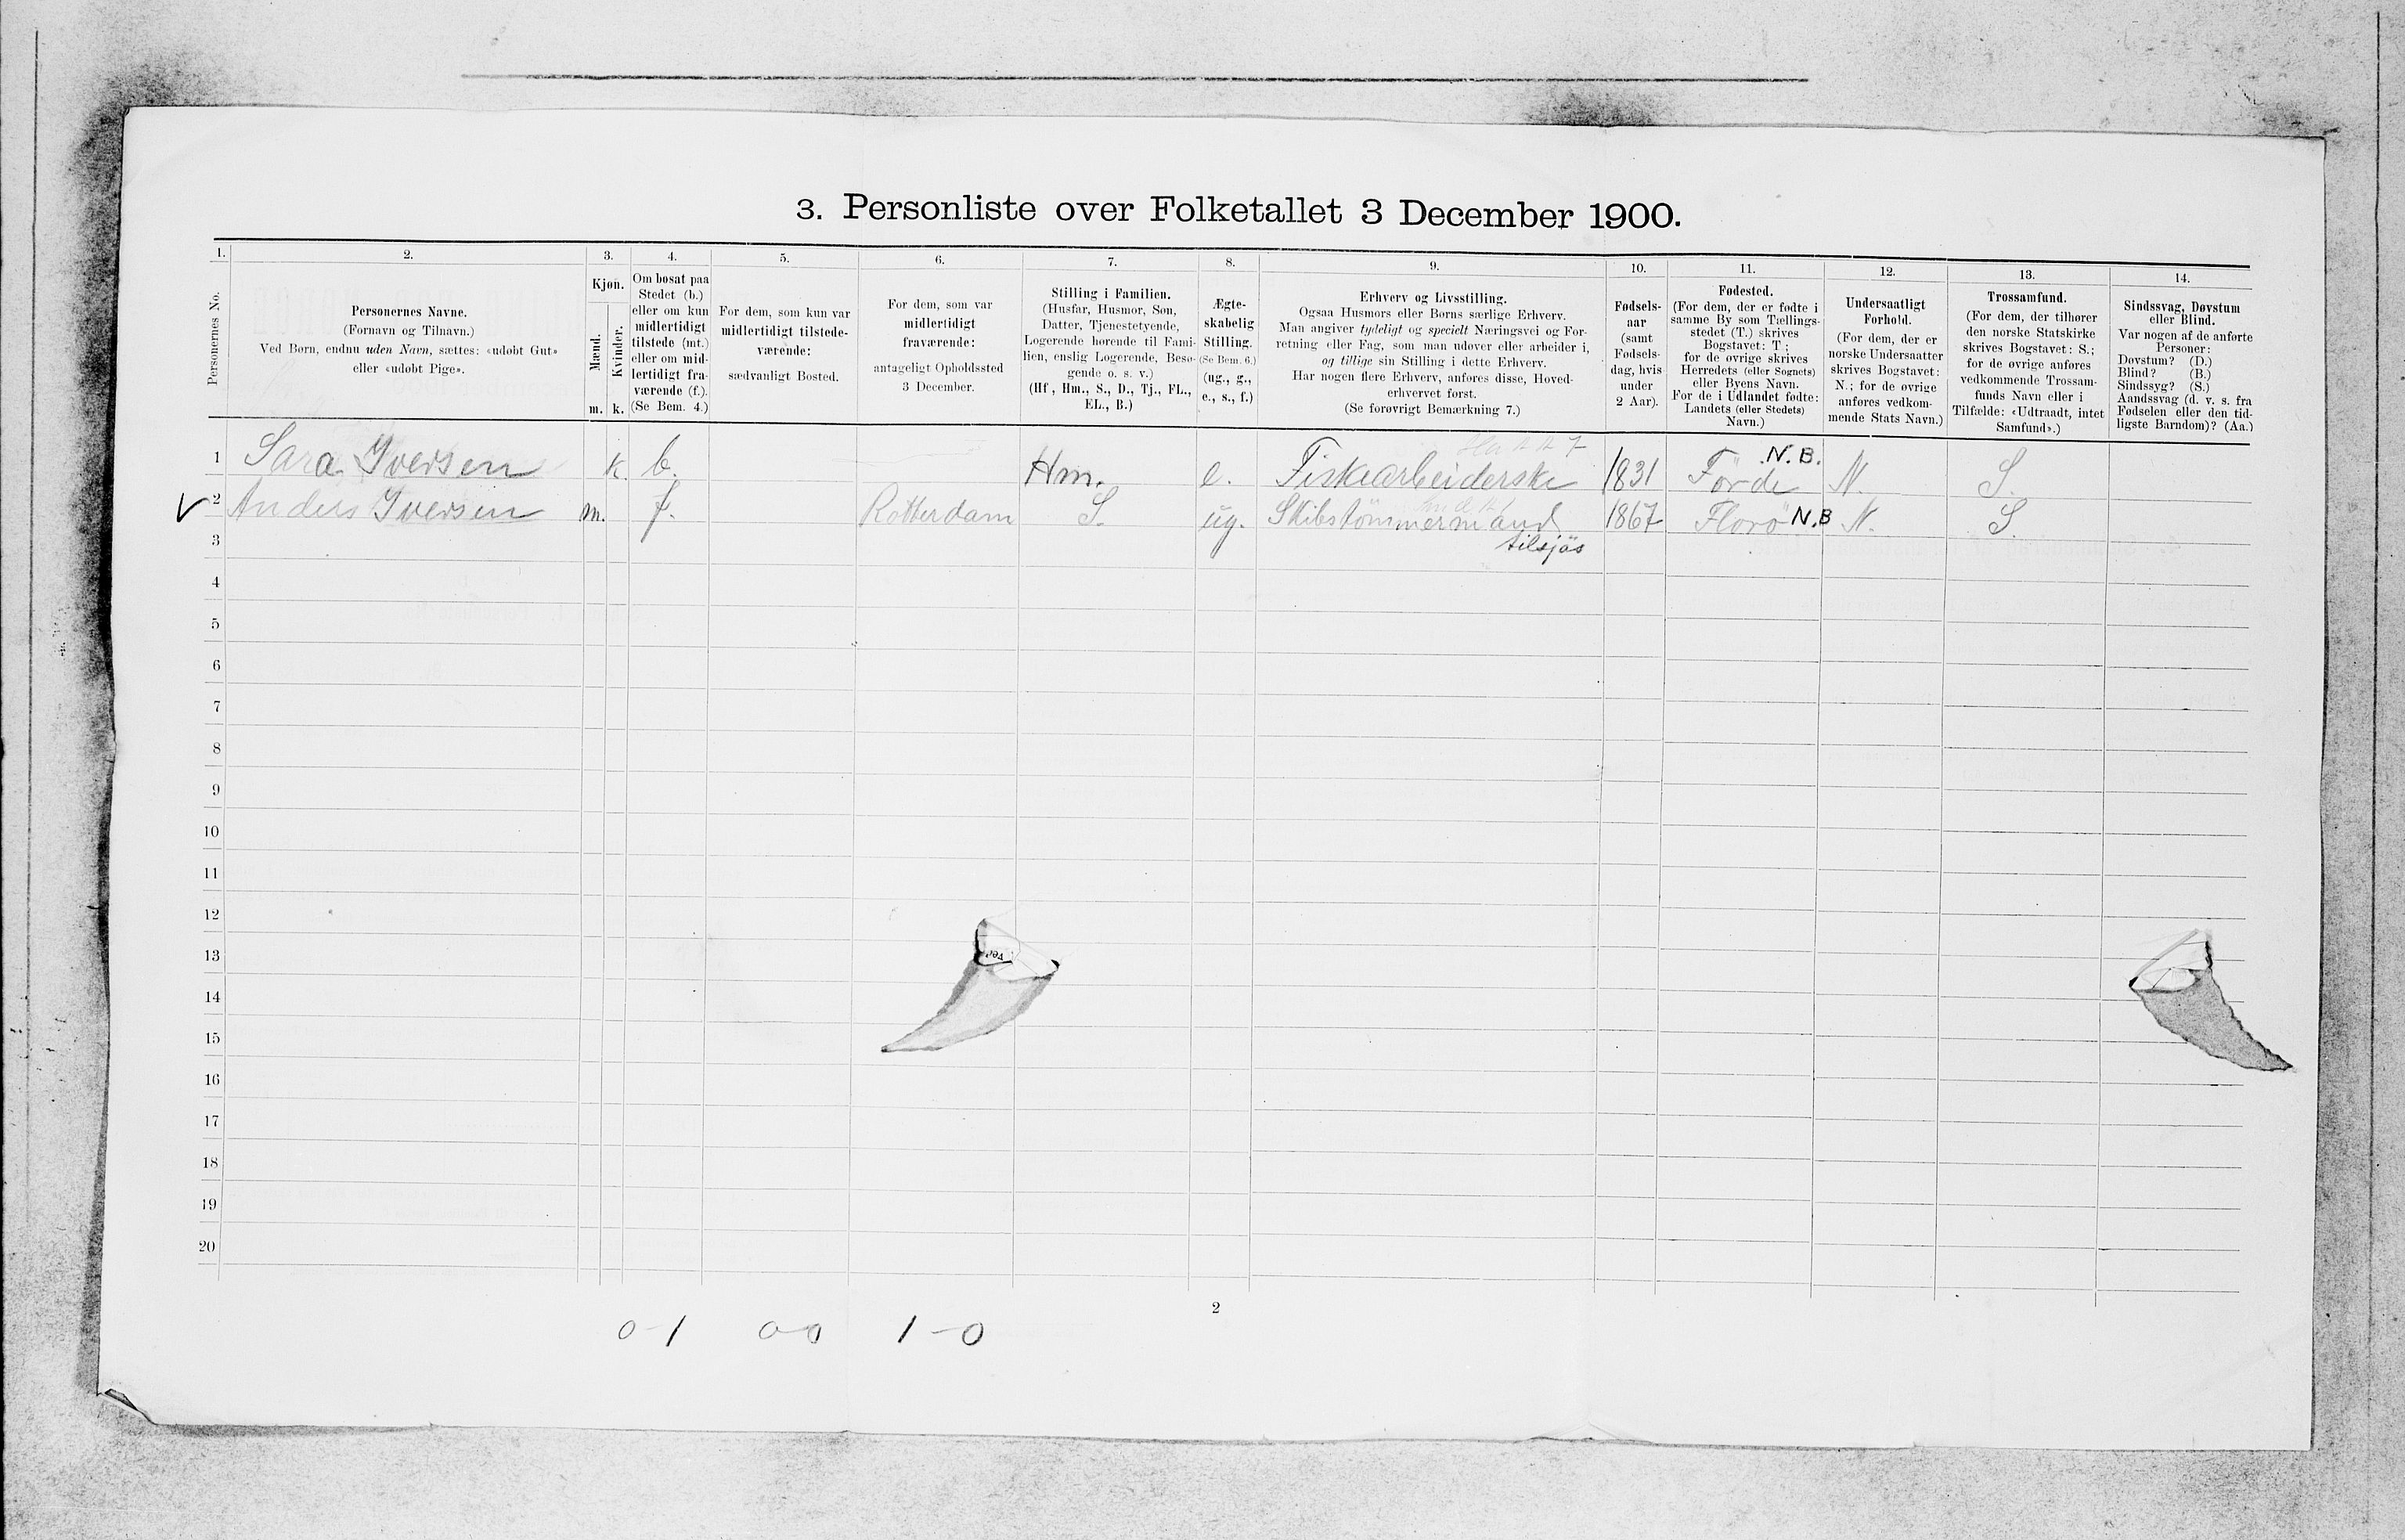 3. Personliste over Folketallet 3 December 1900.
1. 2. 3. 4. 5. 6. 7. 8. 9. 10. 11. 12. 13. 14.
Personernes No.
Personernes Navne.
(Fornavn og Tilnavn.)
Ved Børn, endnu uden Navn, sættes: «udøbt Gut»
eller «udøbt Pige».
Kjøn.
Mænd.
Kvinder.
m. k.
Om bosat paa
Stedet (b.)
eller om kun
midlertidigt
tilstede (mt.)
eller om mid-
lertidigt fra-
værende (f.).
(Se Bem. 4.)
For dem, som kun var
midlertidigt tilstede-
værende:
sædvanligt Bosted.
For dem, som var
midlertidigt
fraværende:
antageligt Opholdssted
3 December.
Stilling i Familien.
(Husfar, Husmor, Søn,
Datter, Tjenestetyende,
Logerende hørende til Fami-
lien, enslig Logerende, Besø-
gende o. s. v.)
(Hf., Hm., S., D., Tj., FL.,
EL., B.)
Ægte-
skabelig
Stilling.
(Se Bem. 6.)
(ug., g.,
e., s., f.)
Erhverv og Livsstilling.
Ogsaa Husmors eller Børns særlige Erhverv.
Man angiver tydeligt og specielt Næringsvei og For-
retning eller Fag, som man udøver eller arbeider i,
og tillige sin Stilling i dette Erhverv.
Har nogen flere Erhverv, anføres disse, Hoved-
erhvervet først.
(Se forøvrigt Bemærkning 7.)
Fødsels-
aar
(samt
Fødsels-
dag, hvis
under
2 Aar).
Fødested.
(For dem, der er fødte i
samme By som Tællings-
stedet (T.) skrives
Bogstavet: T;
for de øvrige skrives
Herredets (eller Sognets)
eller Byens Navn.
For de i Udlandet fødte:
Landets (eller Stedets)
Navn.)
Undersaatligt
Forhold.
(For dem, der er
norske Undersaatter
skrives Bogstavet:
N.; for de øvrige
anføres vedkom-
mende Stats Navn.)
Trossamfund.
(For dem, der tilhører
den norske Statskirke
skrives Bogstavet: S.;
for de øvrige anføres
vedkommende Trossam-
funds Navn eller i
Tilfælde: «Udtraadt, intet
Samfund».)
Sindssvag, Døvstum
eller Blind.
Var nogen af de anførte
Personer:
Døvstum? (D.)
Blind? (B.)
Sindssyg? (S.)
Aandssvag (d. v. s. fra
Fødselen eller den tid-
ligste Barndom)? (Aa.)
1 Sara Iversen k. b. Hm. e. Fiskearbeiderske 1831 Førde N.B. N. S.
2 Anders Iversen m. f. Rotterdam S. ug. Skibstömmermand 1867 Florö N.B N. S.
tilsjös
3
4
5
6
7
8
9
10
11
12
13
14
15
16
17
18
19
20
2
0-1 0-0 1-0